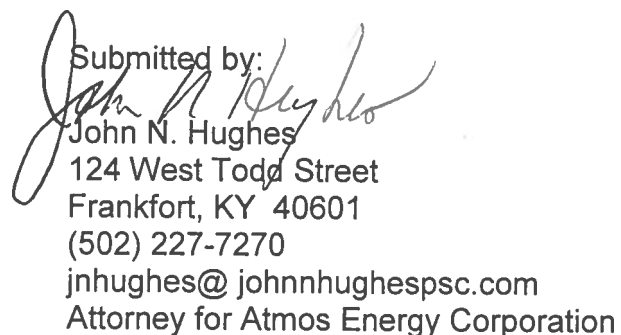 Submitted by:
John N Hughes
John N. Hughes
124 West Todd Street
Frankfort, KY 40601
(502) 227-7270
jnhughes@ johnnhughespsc.com
Attorney for Atmos Energy Corporation